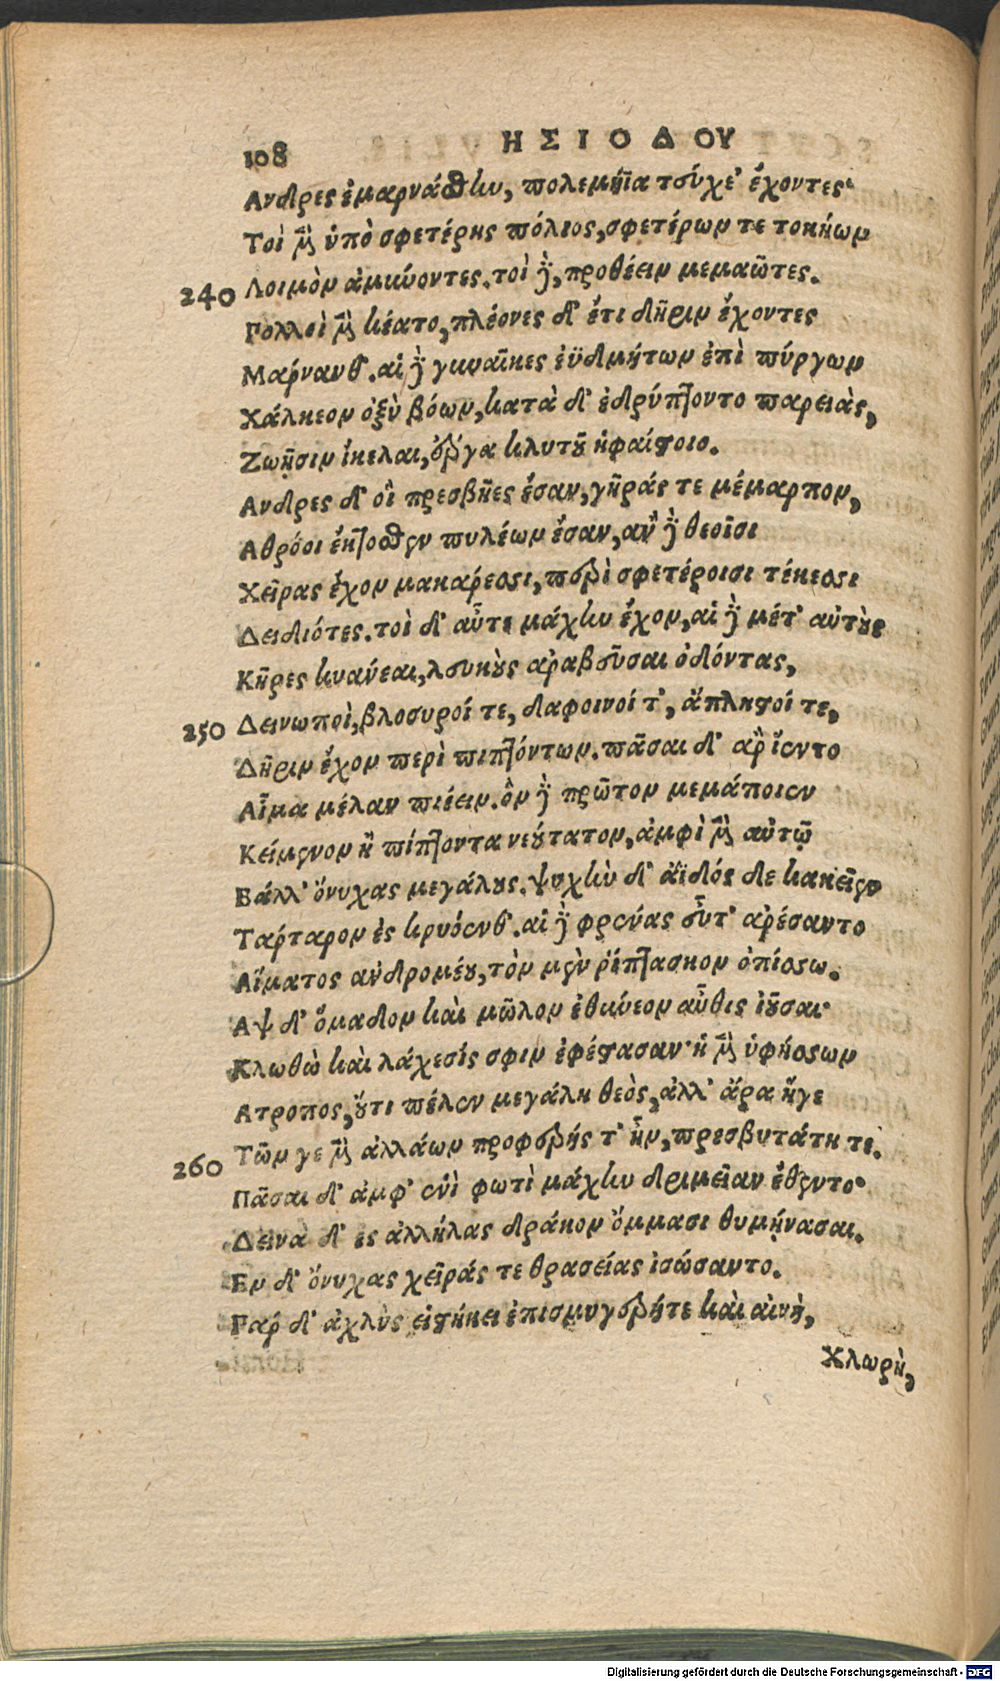 108 ΗΣΙΟΔΟΥ
Ανδρες ἐμαρνάσθην, πολεμήϊα τεύχε' ἔχοντες·
Τοὶ μὲν ὑπὸ σφετέρης πόλιος, σφετέρων τε τοκήων
240 Λοιμὸν ἀμύνοντες. τοὶ δὲ, προθέειν μεμαῶτες.
Γολλοὶ μὲν κέατο, πλέονες δ' ἔτι δῆριν ἔχοντες
Μάρνανθ'. αἱ δὲ γυναῖκες ἐϋδμήτων ἐπὶ πύργων
Χάλκεον ὀξὺ βόων, κατὰ δ' ἐδρύπτοντο παρειὰς,
Ζωῇσιν ἴκελαι, ἔργα κλυτοῦ ἡφαίστοιο.
Ανδρες δ' οἳ πρεσβῆες ἔσαν, γῆράς τε μέμαρπον,
Αθρόοι ἔκτοσθεν πυλέων ἔσαν, ἂν δὲ θεοῖσι
Χεῖρας ἔχον μακάρεσσι, περὶ σφετέροισι τέκεσσι
Δειδιότες. τοὶ δ' αὖτε μάχην ἔχον, αἱ δὲ μέτ' αὐτοὺς
Κῆρες κυάνεαι, λευκοὺς ἀραβεῦσαι ὀδόντας,
250 Δεινωποὶ, βλοσυροί τε, δαφοινοί τ', ἄπληστοί τε,
Δῆριν ἔχον περὶ πιπτόντων. πᾶσαι δ' ἂρ ἵεντο
Αἷμα μέλαν πιέειν. ὃν δὲ πρῶτον μεμάποιεν
Κείμενον ἢ πίπτοντα νεούτατον, ἀμφὶ μὲν αὐτῷ
Βάλλ' ὄνυχας μεγάλους. ψυχὴν δ' ἄϊδός δε κακεῖεν
Τάρταρον ἐς κρυόενθ'. αἱ δὲ φρένας εὖτ' ἀρέσαντο
Αἵματος ἀνδρομέου, τὸν μὲν ῥίπτασκον ὀπίσσω.
Αψ δ' ὅμαδον καὶ μῶλον ἐθύνεον αὖθις ἰοῦσαι·
Κλωθὼ καὶ λάχεσίς σφιν ἐφέστασαν· ἡ μὲν ὑφήσσων
Ατροπος, οὔτι πέλεν μεγάλη θεὸς, ἀλλ' ἄρα ἥγε
260 Τῶν γε μὲν ἀλλάων προφερής τ' ἦν, πρεσβυτάτη τε.
Πᾶσαι δ' ἀμφ' ἑνὶ φωτὶ μάχην δριμεῖαν ἔθεντο·
Δεινὰ δ' ἐς ἀλλήλας δράκον ὄμμασι θυμήνασαι.
Εν δ' ὄνυχας χεῖράς τε θρασείας ἰσώσαντο.
Γὰρ δ' ἀχλὺς εἱστήκει ἐπισμυγερήτε καὶ αἰνὴ,
Χλωρὴ,
Digitalisierung gefördert durch die Deutsche Forschungsgemeinschaft - DFG